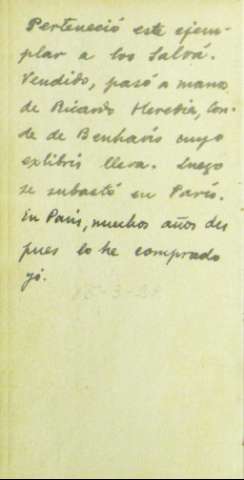 Perteneció este ejem-
plar a los Salvá.
Vendido, pasó a manos
de Ricardo Heredia, Con-
de de Benhavís cuyo
exlibris lleva. Luego
se subastó en París.
En París, muchos años des
pues lo he comprado
yó.